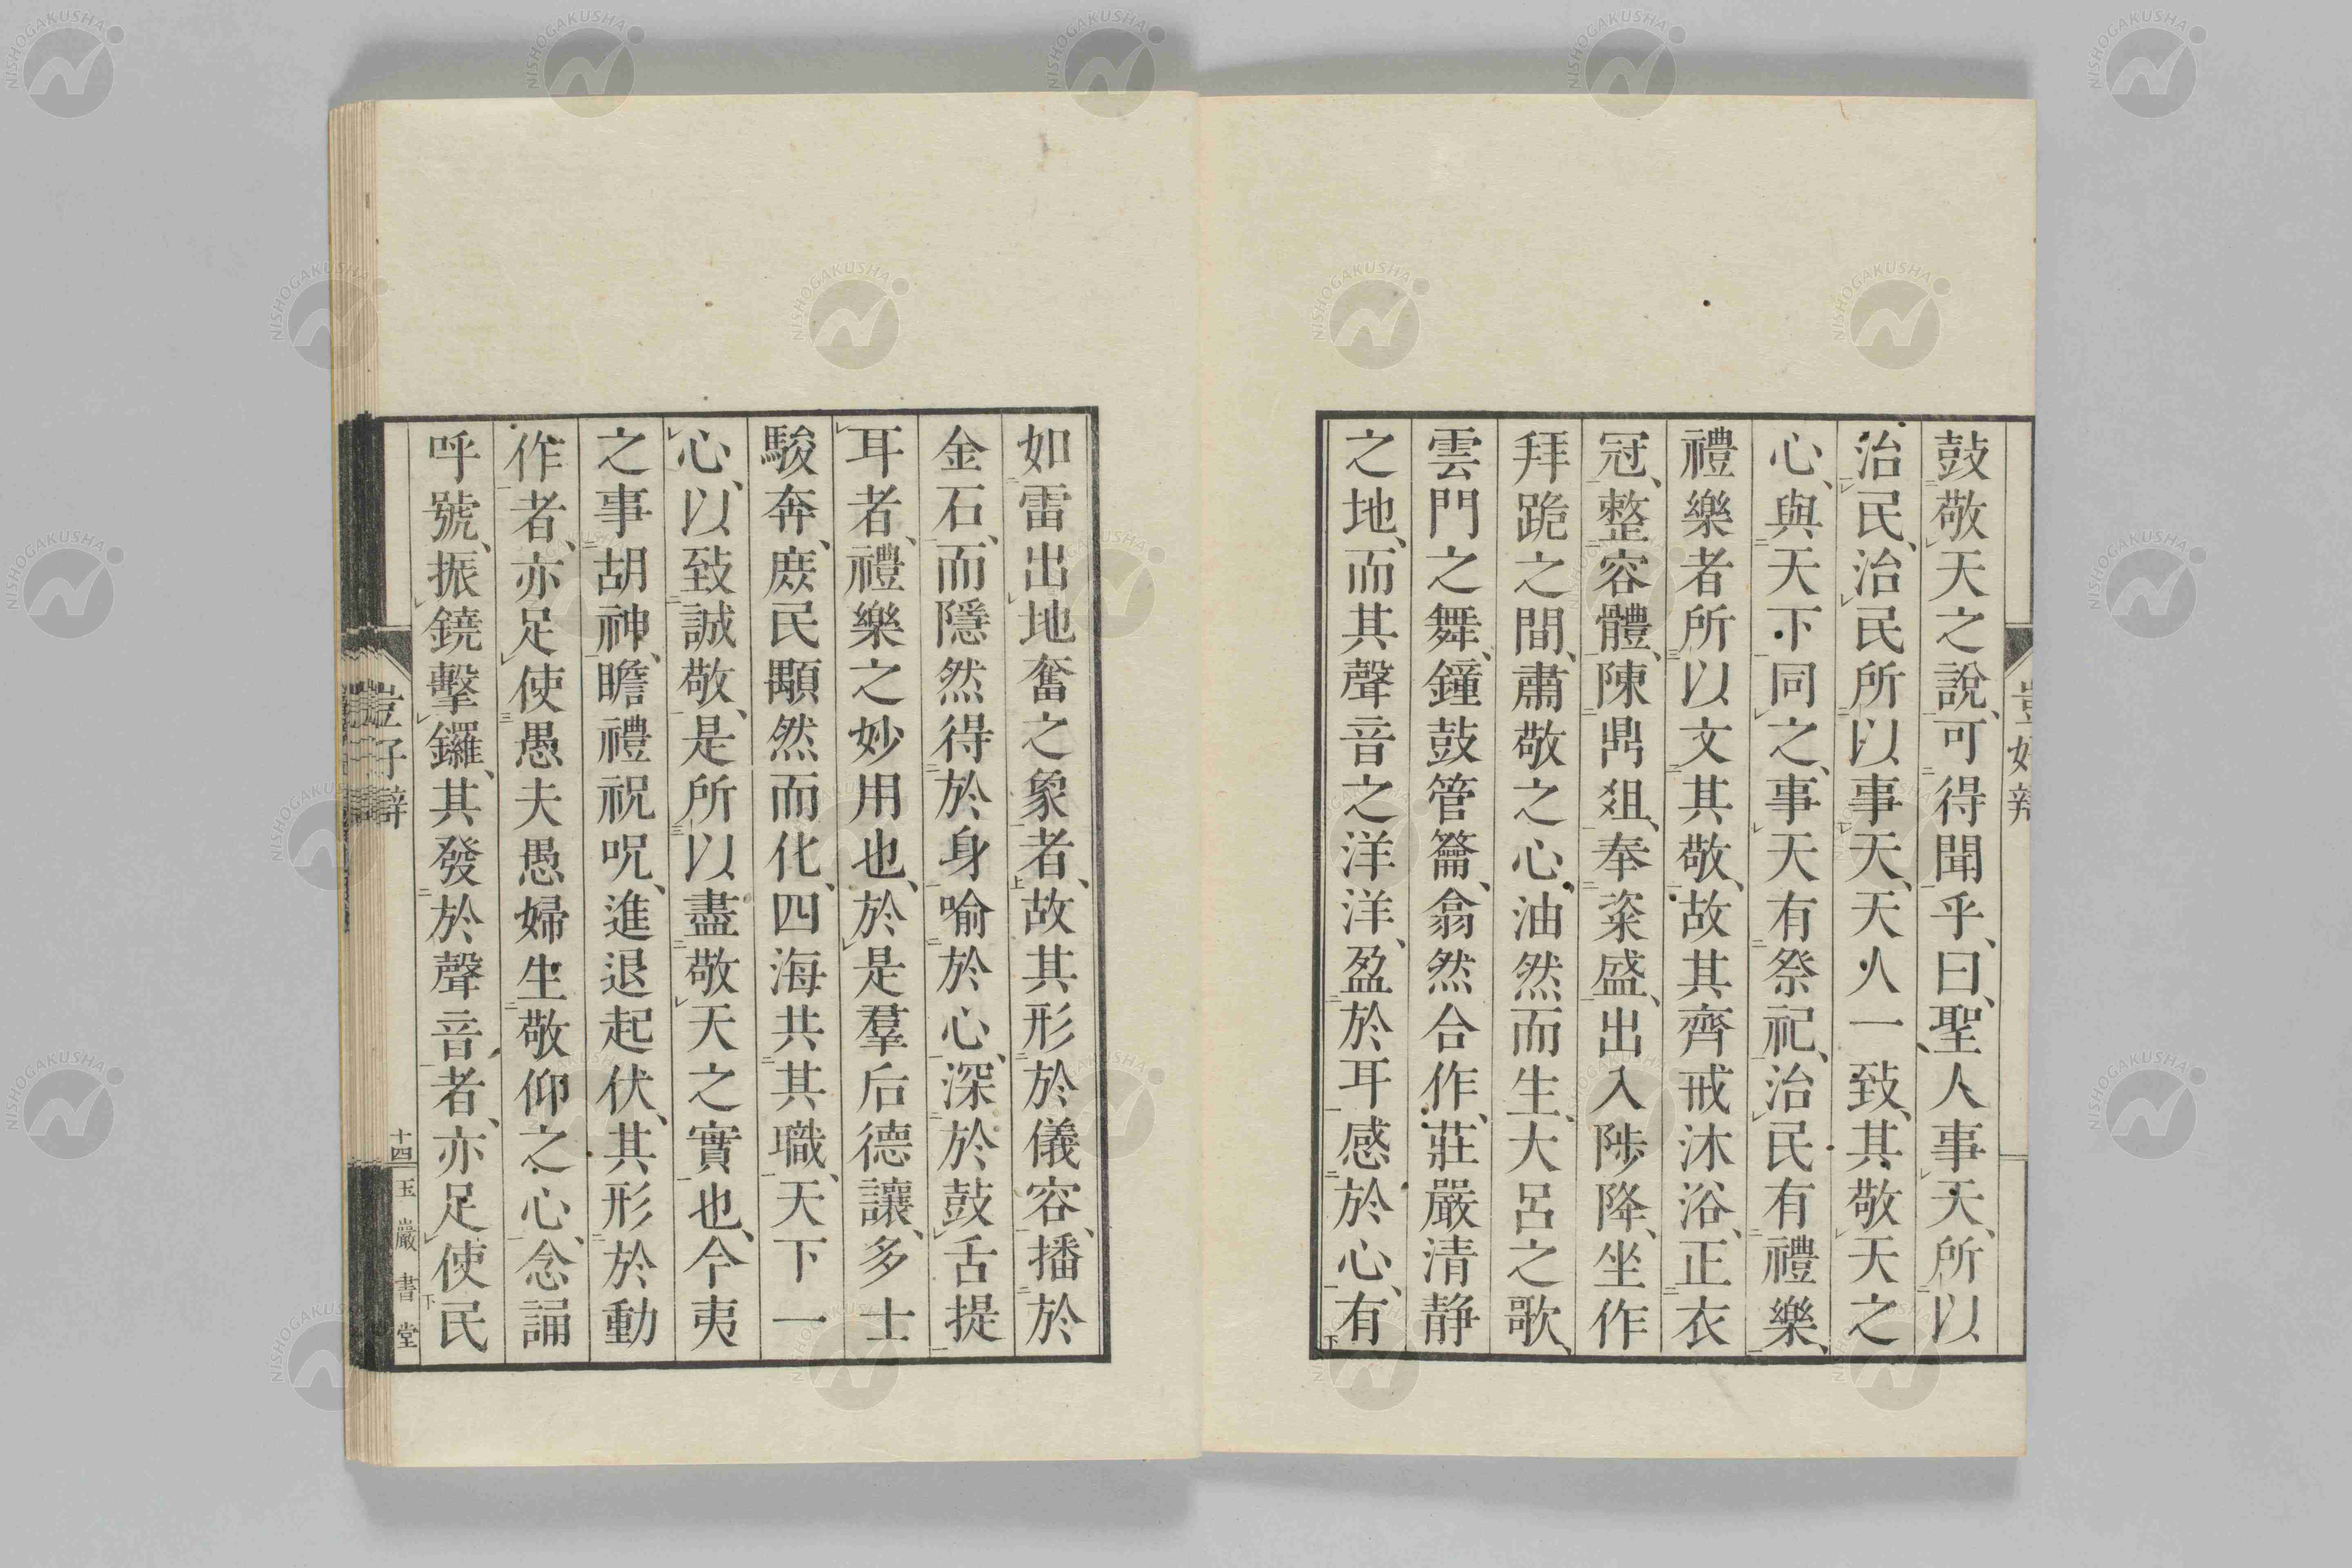 鼓敬天之說、可得聞乎、曰、聖人事天、所以
治民、治民所以事天、天人一致、其敬天之
心、與天下同之、事天有祭祀、治民有禮樂、
禮樂者所以文其敬、故其齊戒沐浴、正衣
冠、整容體、陳鼎俎、奉粢盛、出入陟降、坐作
拜跪之間、肅敬之心、油然而生、大呂之歌、
雲門之舞、鐘鼓管籥、翕然合作、莊嚴清静
之地、而其聲音之洋洋、盈於耳感於心、有
如雷出地奮之象者、故其形於儀容、播於
金石、而隱然得於身喻於心、深於鼓舌提
耳者、禮樂之妙用也、於是羣后德讓、多士
駿奔、庶民顒然而化、四海共其職、天下一
心、以致誠敬、是所以盡敬天之實也、今夷
之事胡神、瞻禮祝呪、進退起伏、其形於動
作者、亦足使愚夫愚婦生敬仰之心、念誦
呼號、振鐃擊鑼、其發於聲音者、亦足使民
十四
玉巖書堂
NISHOGAKUSHA